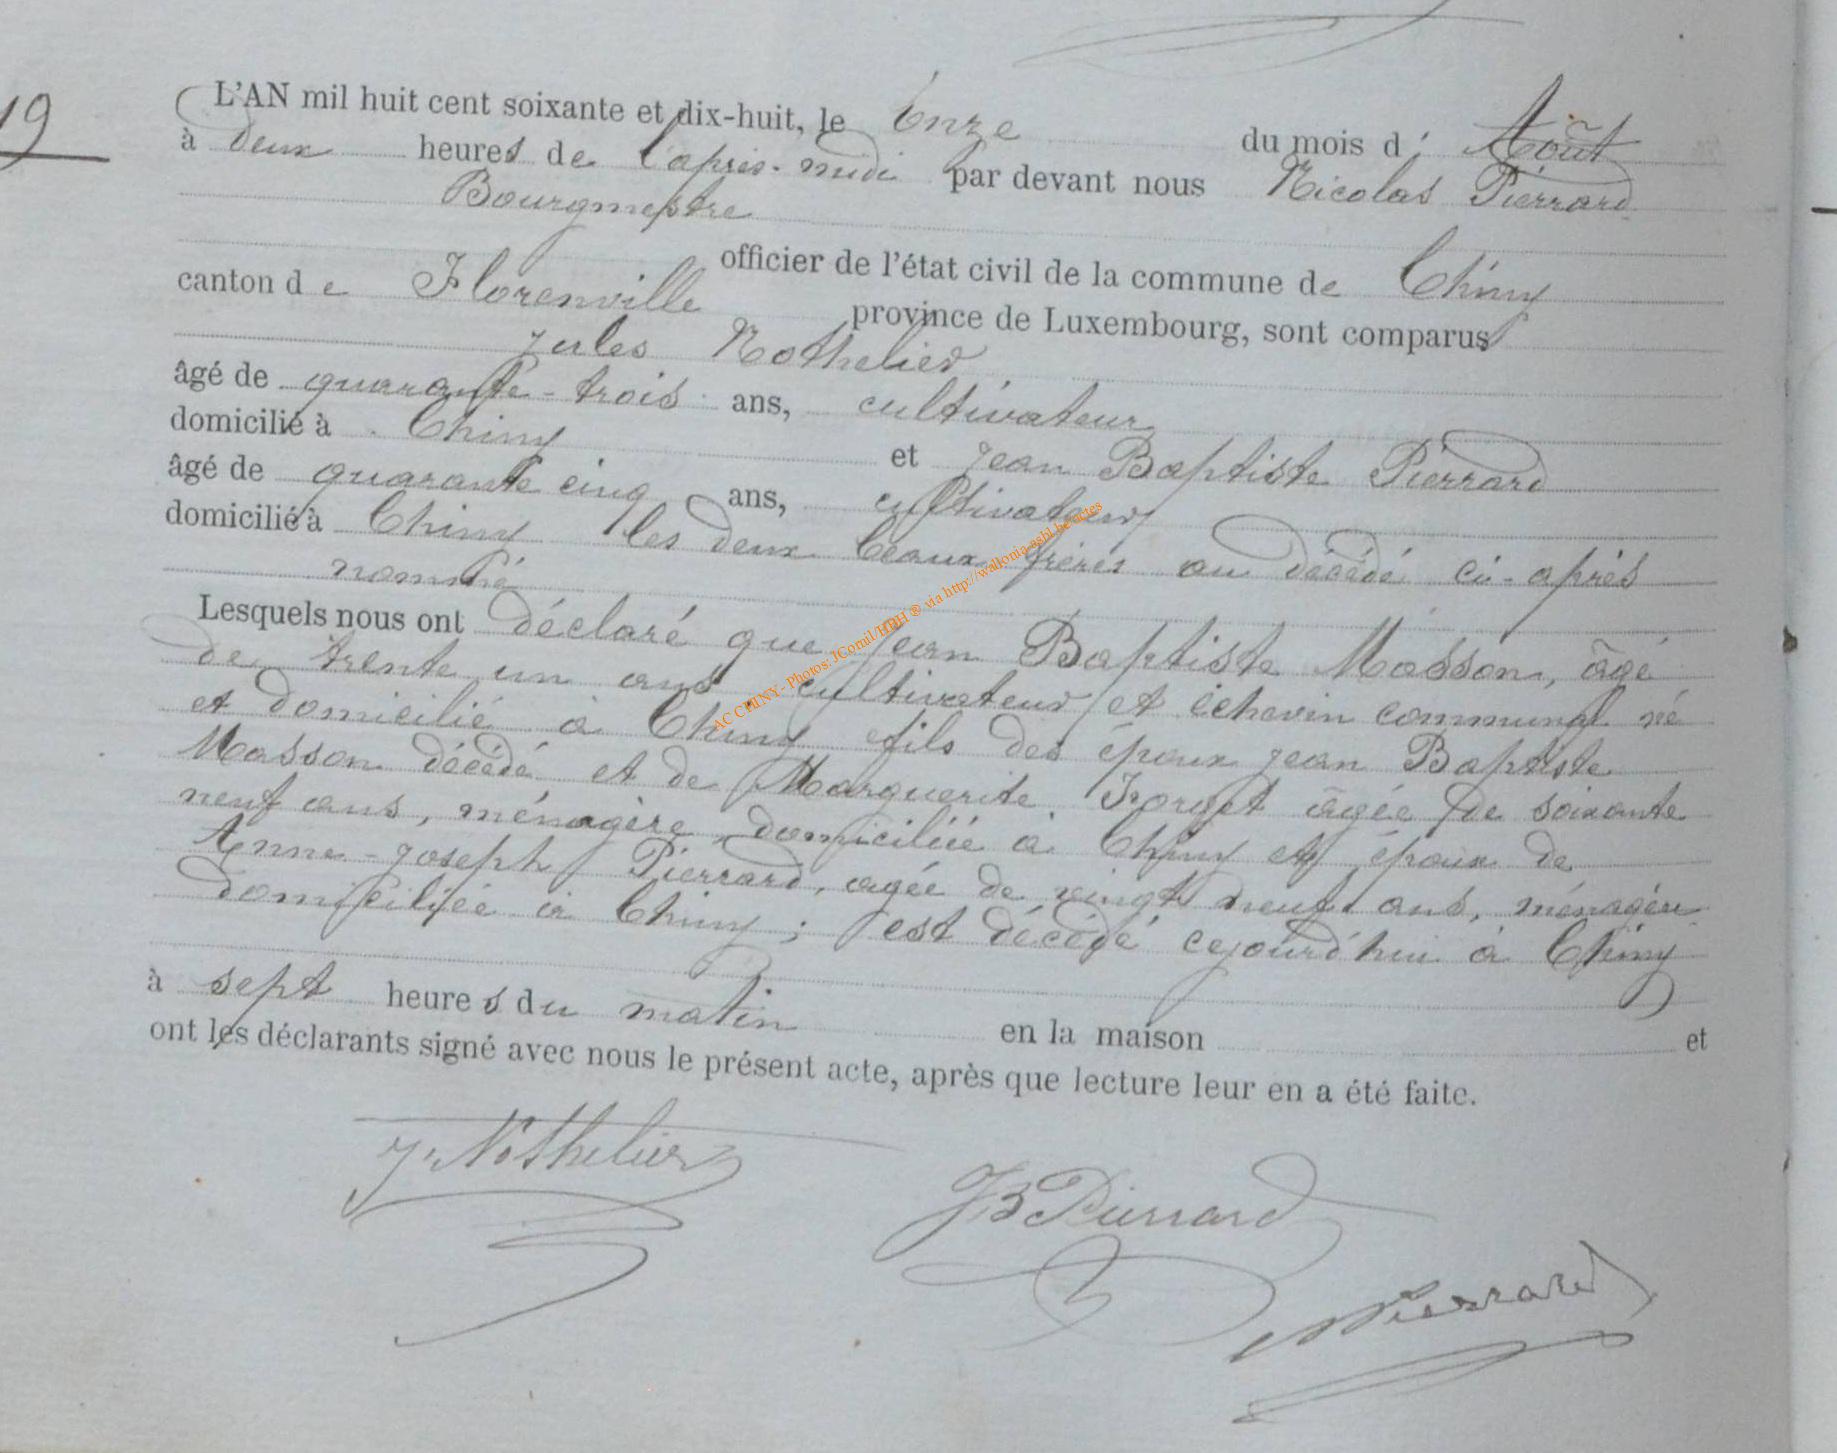 19
L'AN mil huit cent soixante et dix-huit, le Onze du mois d' Août
à deux heures de l'après-midi par devant nous Nicolas Pierrard
Bourgmestre
officier de l'état civil de la commune de Chiny
canton de Florenville province de Luxembourg, sont comparus
Jules Nothelier
âgé de quarante-trois ans, cultivateur
domicilié à Chiny et Jean Baptiste Pierrard
âgé de quarante cinq ans, cultivateur
domicilié à Chiny les deux beaux frères au décédé ci-après
nommé
Lesquels nous ont déclaré que Jean Baptiste Masson, âgé
de trente un ans cultivateur et échevin communal né
et domicilié à Chiny fils des époux Jean Baptiste
Masson décédé et de Marguerite Forget âgée de soixante
neuf ans, ménagère, domiciliée à Chiny et époux de
Anne-Joseph Pierrard, agée de vingt neuf ans, ménagère
domiciliée à Chiny; est décédé cejourd'hui à Chiny
à sept heures du matin en la maison et
ont les déclarants signé avec nous le présent acte, après que lecture leur en a été faite.
J. Nothelier
JB Pierrard
N Pierrard
AC CHINY - Photos: JComil/HBH ® via http://wallonia-asbl.be/actes